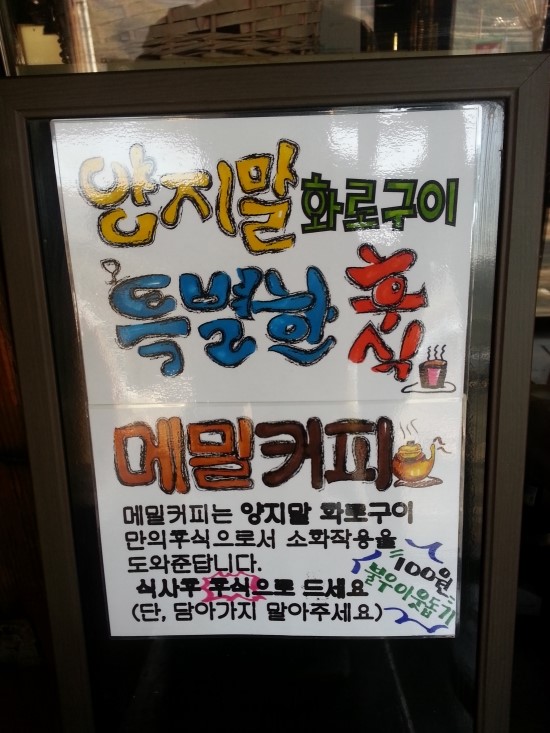 양지말 화로구이
특별한 후식
메밀커피
메밀커피는 양지말 화로구이
만의후식으로서 소화작용을
도와준답니다.
식사후 후식으로 드세요
(단, 담아가지 말아주세요)
100원
불우이웃돕기